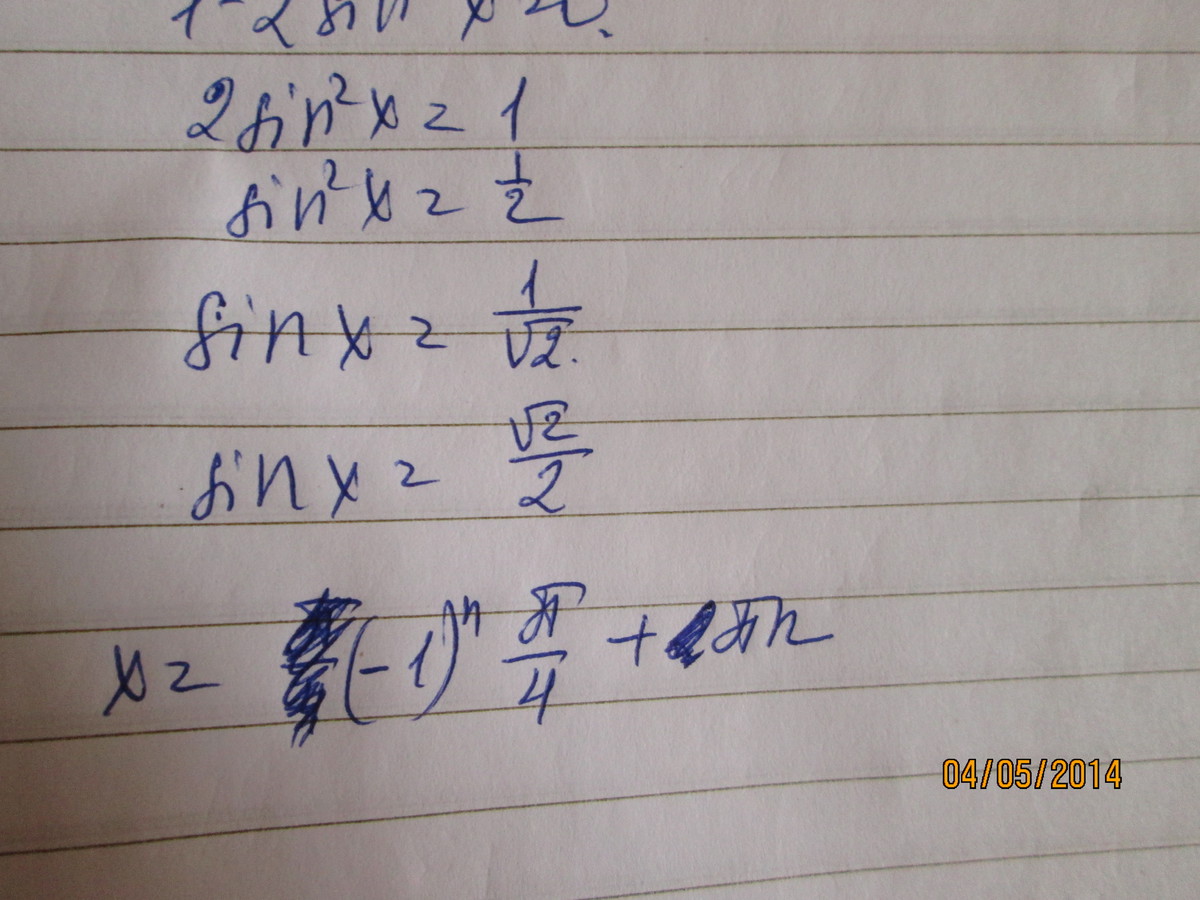 1-2 sin² x = 0.
2 sin² x = 1
sin² x = 1/2
sin x = 1/√2.
sin x = √2/2
x = (-1)ⁿ π/4 + πn
04/05/2014